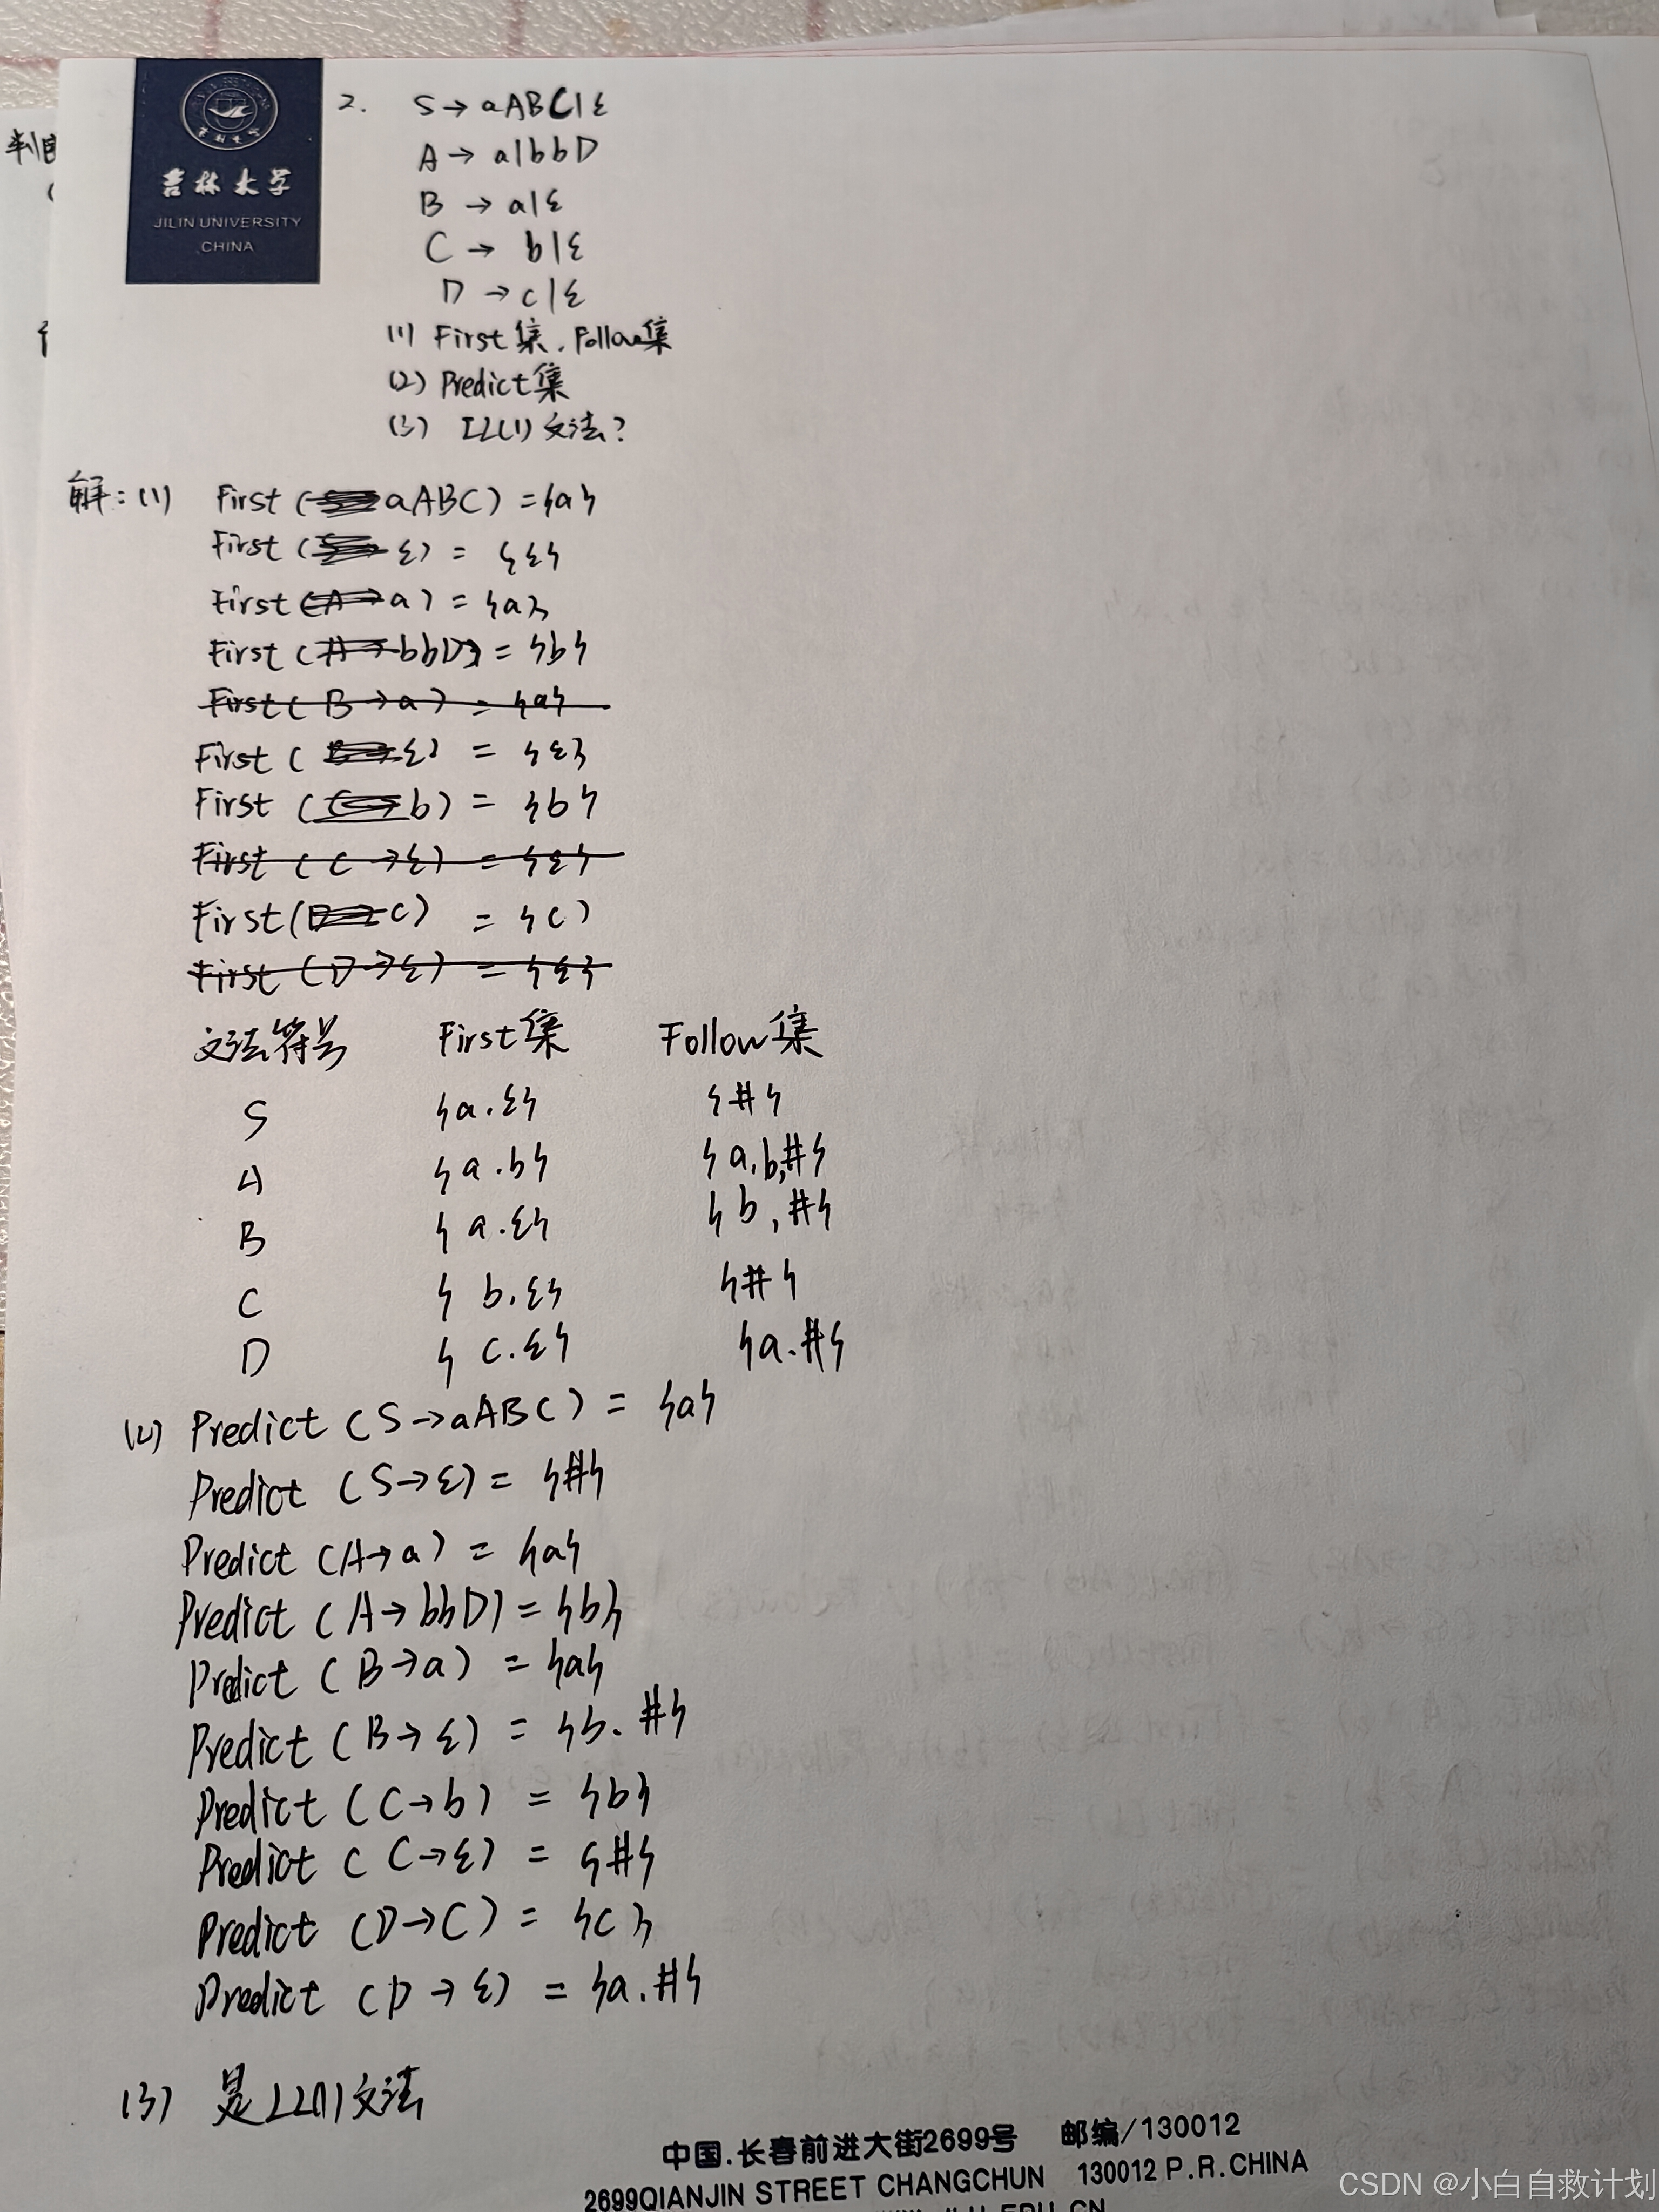 吉林大学
JILIN UNIVERSITY
CHINA
2. S→aABC|ε
A→a|bbD
B→a|ε
C→b|ε
D→c|ε
(1) First集,Follow集
(2) Predict集
(3) LL(1)文法?
解:(1) First(aABC)={a}
First(ε)={ε}
First(a)={a}
First(bbD)={b}
First(B→a)={a}
First(ε)={ε}
First(b)={b}
First(C→ε)={ε}
First(c)={c}
First(D→ε)={ε}
文法符号 First集 Follow集
S {a.ε} {#}
A {a.b} {a,b,#}
B {a.ε} {b,#}
C {b.ε} {#}
D {c.ε} {a.#}
(2) Predict(S→aABC)={a}
Predict(S→ε)={#}
Predict(A→a)={a}
Predict(A→bbD)={b}
Predict(B→a)={a}
Predict(B→ε)={b.#}
Predict(C→b)={b}
Predict(C→ε)={#}
Predict(D→C)={c}
Predict(D→ε)={a.#}
(3) 是LL(1)文法
中国.长春前进大街2699号 邮编/130012
2699QIANJIN STREET CHANGCHUN 130012 P.R.CHINA
CSDN @小白自救计划